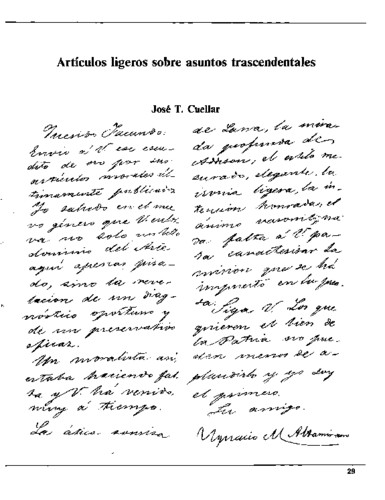 Artículos ligeros sobre asuntos trascendentales
José T. Cuellar
Querido Facundo:
Envío á V ese escu-
dito de oro por sus
artículos morales úl-
timamente publicados
Yo saludo en el nue-
vo género que V culti-
va no solo un bello
dominio del Arte
aquí apenas pisa-
do, sino la reve-
lacion de un diag-
nóstico oportuno y
de un preservativo
eficaz.
Un moralista así,
estaba haciendo fal-
ta y V. há venido
muy á tiempo.
La ática sonrisa
de Larra, la mira-
da profunda de
Adisson, el estilo me-
surado, elegante, la
ironia ligera, la in-
tencion honrada, el
ánimo varonil, na-
da falta á V pa-
ra caracterizar la
mision que se há
impuesto en la pren-
sa. Siga V. Los que
quieren el bien de
la Patria no pue-
den menos de a-
plaudirlo y yo soy
el primero.
Su amigo.
Ygnacio M Altamirano
29